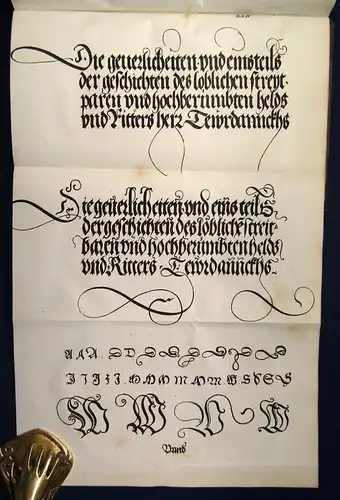 Die geuerlicheiten vnd einsteils
der geschichten des loblichen streyt-
paren vnd hochberumbten helds
vnd Ritters herr Tewrdannckhs
Die geuerlicheiten vnd eins teils
der geschichten des loblichē streit-
baren vnd hochberumbten helds
vnd Ritters Tewrdannckhs
A A A . D D D D D D D D
J J J J J . M M M M M M S S S S
W W W W
Vnnd